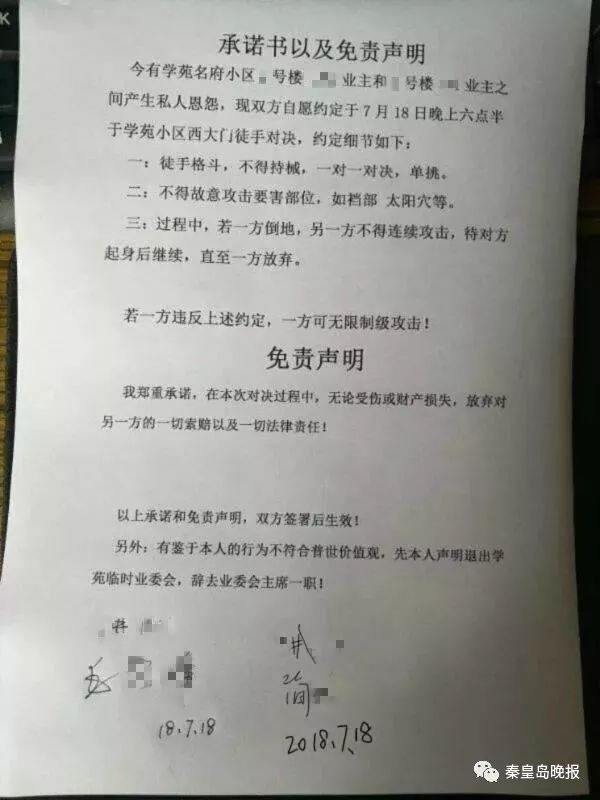 承诺书以及免责声明
今有学苑名府小区 号楼 业主和 号楼 业主之
间产生私人恩怨，现双方自愿约定于7月18日晚上六点半
于学苑小区西大门徒手对决，约定细节如下：
一：徒手格斗，不得持械，一对一对决，单挑。
二：不得故意攻击要害部位，如裆部 太阳穴等。
三：过程中，若一方倒地，另一方不得连续攻击，待对方
起身后继续，直至一方放弃。
若一方违反上述约定，一方可无限制级攻击！
免责声明
我郑重承诺，在本次对决过程中，无论受伤或财产损失，放弃对
另一方的一切索赔以及一切法律责任！
以上承诺和免责声明，双方签署后生效！
另外：有鉴于本人的行为不符合普世价值观，先本人声明退出学
苑临时业委会，辞去业委会主席一职！
18.7.18
2018.7.18
秦皇岛晚报